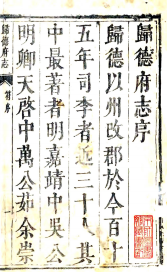 歸德府志序
歸德以州改郡於今百十
五年司李者近三十人其
中最著者明嘉靖中吳公
明卿天啓中萬公茹余崇
歸德府志